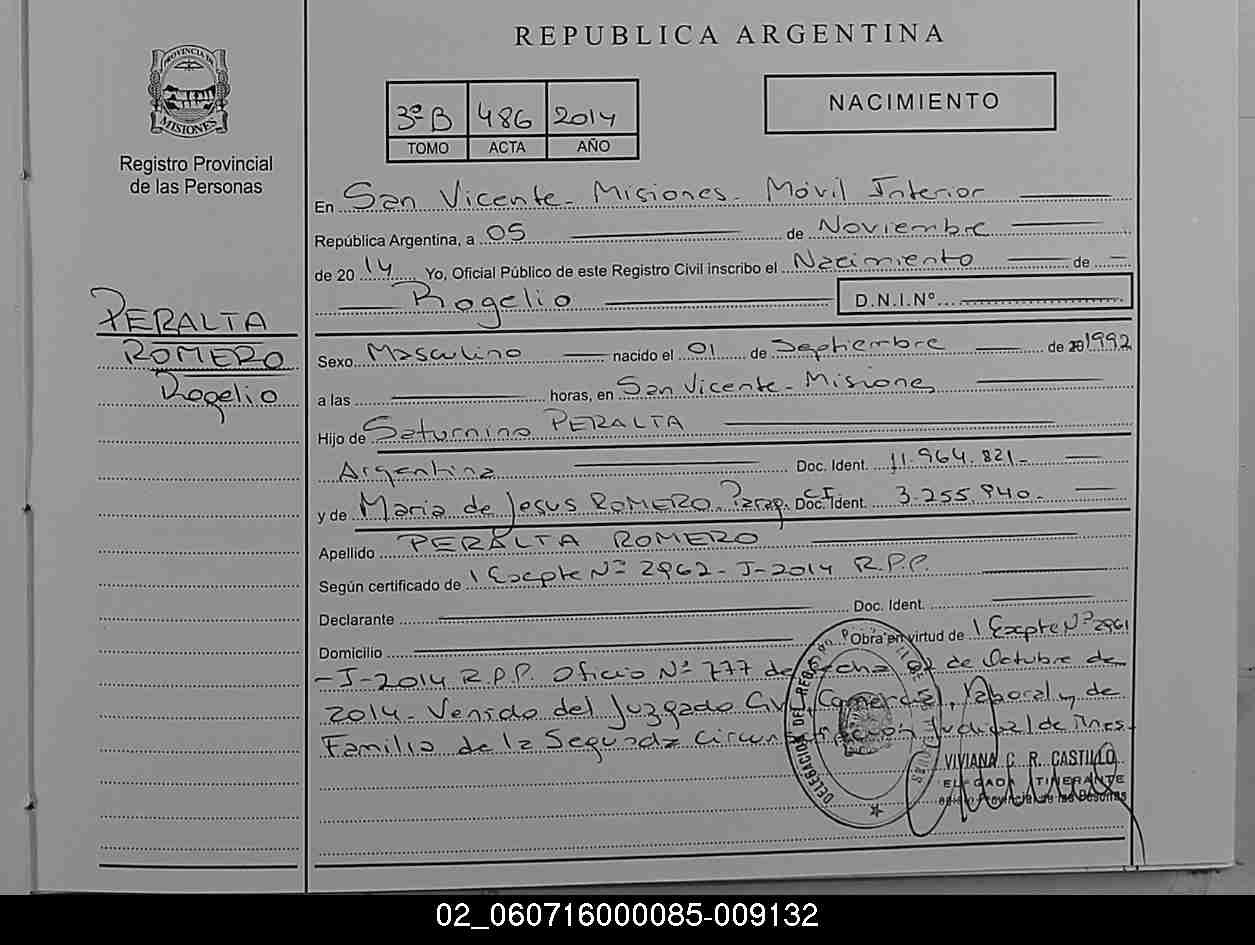 PROVINCIA DE
MISIONES
Registro Provincial
de las Personas
PERALTA
ROMERO
Rogelio
REPUBLICA ARGENTINA
3º B 486 2014
TOMO ACTA AÑO
NACIMIENTO
En San Vicente - Misiones - Móvil Interior
República Argentina, a 05 de Noviembre
de 2014 Yo, Oficial Público de este Registro Civil inscribo el Nacimiento de
Rogelio D.N.I.Nº
Sexo Masculino nacido el 01 de Septiembre de 1992
a las horas, en San Vicente - Misiones
Hijo de Saturnino PERALTA
Argentina Doc. Ident. 11.964.821-
y de Maria de Jesus ROMERO. Parag. CI Doc. Ident. 3.255.940-
Apellido PERALTA ROMERO
Según certificado de 1 Expte Nº 2962 - J - 2014 R.P.P.
Declarante Doc. Ident.
Domicilio Obra en virtud de 1 Expte Nº 2961
- J - 2014 R.P.P. Oficio Nº 777 de fecha 02 de Octubre de
2014 - Venido del Juzgado Civil, Comercial, laboral y de
Familia de la Segunda Circunscripción Judicial de Mnes.
DELEGACION DEL REG
VIVIANA C. R. CASTILLO
DELEGADA ITINERANTE
Registro Provincial de las Personas
02_060716000085-009132